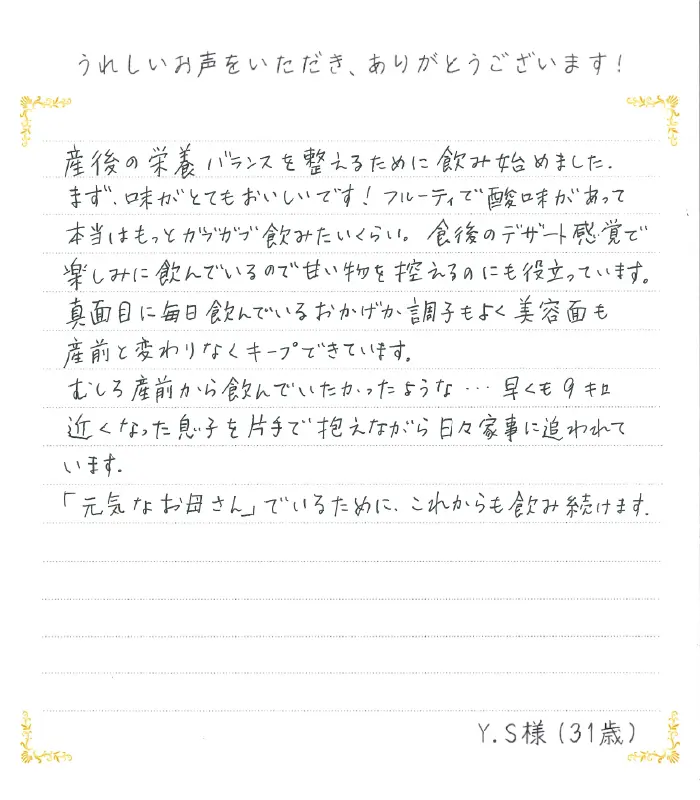 うれしいお声をいただき、ありがとうございます!
産後の栄養バランスを整えるために飲み始めました.
まず、味がとてもおいしいです!フルーティで酸味があって
本当はもっとガブガブ飲みたいくらい。食後のデザート感覚で
楽しみに飲んでいるので甘い物を控えるのにも役立っています。
真面目に毎日飲んでいるおかげか調子もよく美容面も
産前と変わりなくキープできています。
むしろ産前から飲んでいたかったような…早くも9キロ
近くなった息子を片手で抱えながら日々家事に追われて
います.
「元気なお母さん」でいるために、これからも飲み続けます.
Y.S様(31歳)